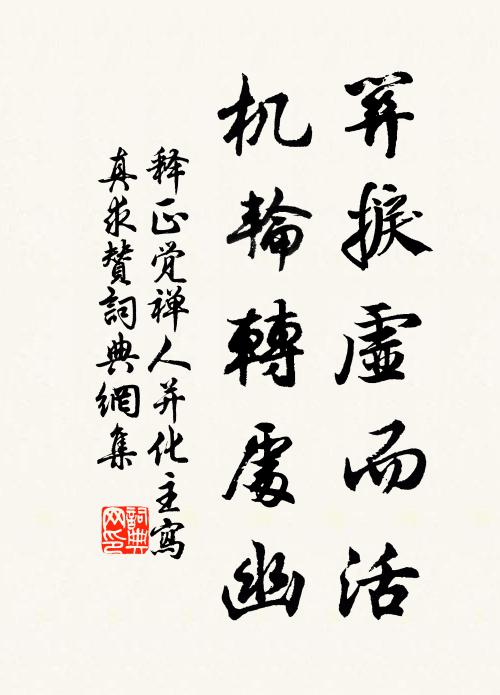 關捩虛而活
机輪轉處幽
释正觉禅人并化主寫
真求赞詞典網集
詞典
网印